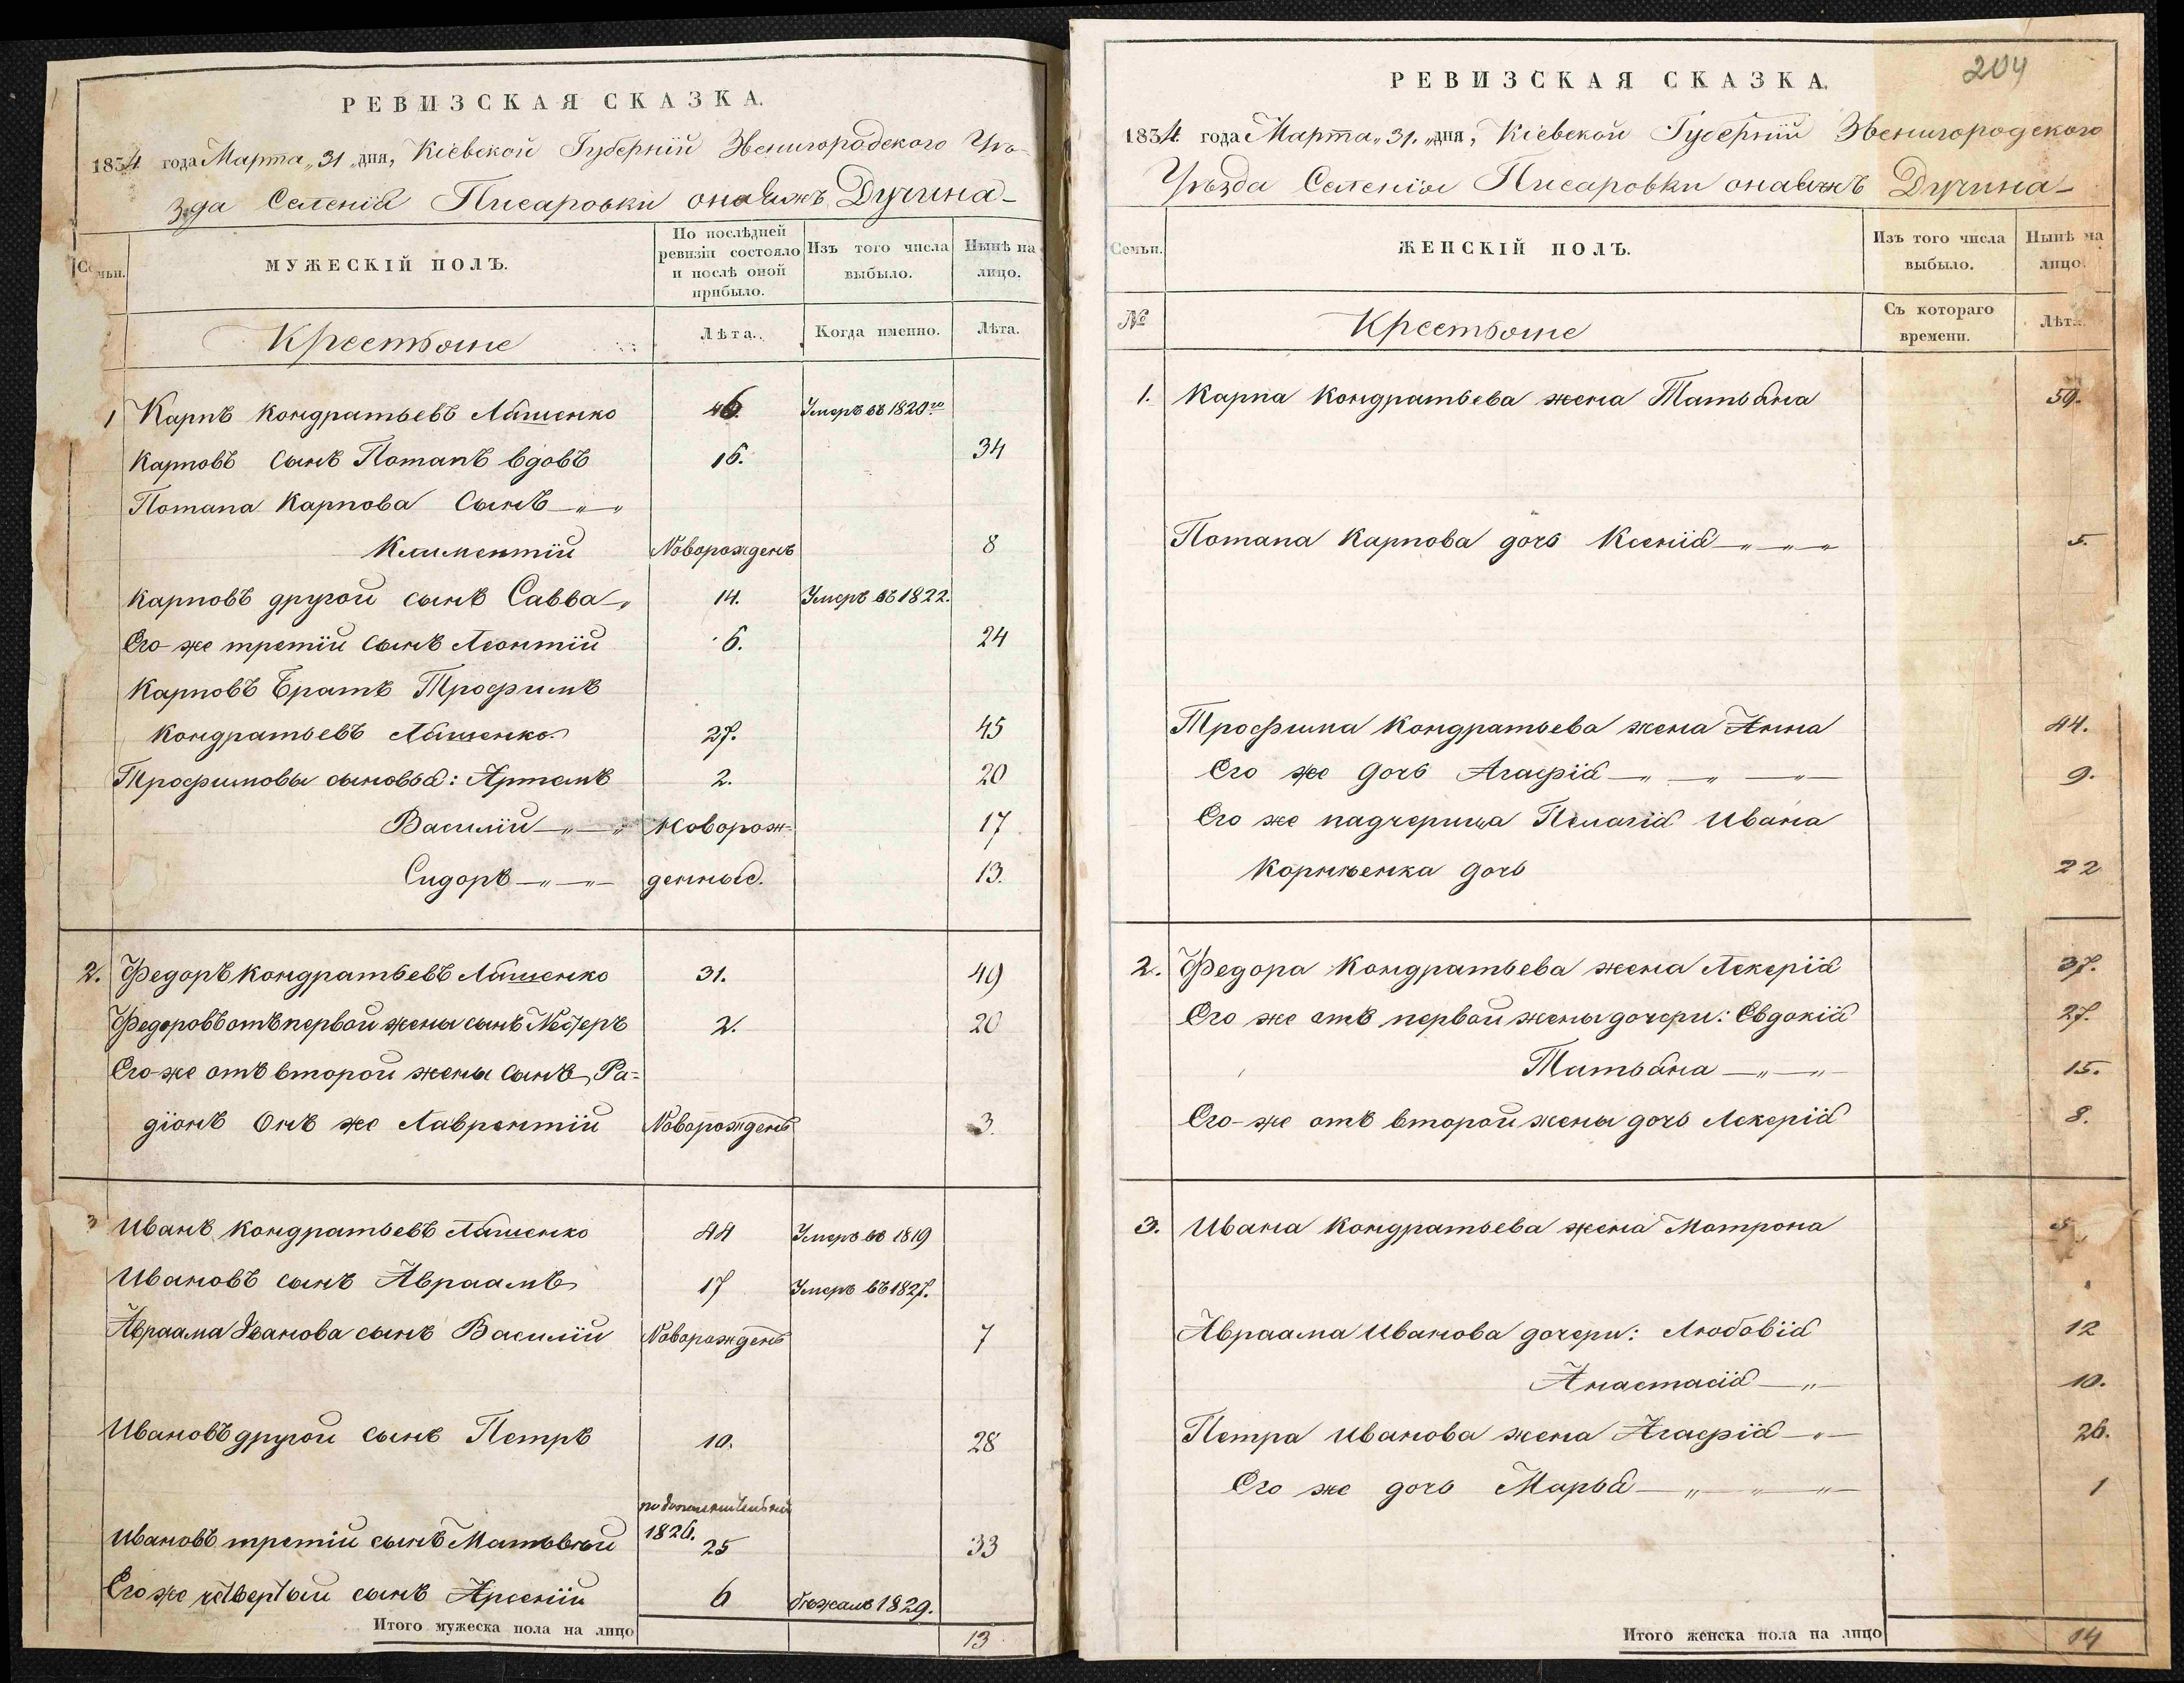 РЕВИЗСКАЯ СКАЗКА.
1834 года Марта „31 „дня, Кіевской Губерніи Звенигородского Уѣ-
зда Селенія Писаровки она жъ Дучина-
Семьи.
МУЖЕСКІЙ ПОЛЪ.
По послѣдней ревизіи состояло и послѣ оной прибыло.
Изъ того числа выбыло.
Нынѣ на лицо.
Крестьяне
Лѣта.
Когда именно.
Лѣта.
1 Карпъ Кондратьевъ Ляшенко 46. Умеръ въ 1820го
Карповъ сынъ Потапъ вдовъ 16. 34
Потапа Карпова сынъ „ „
Климентій Новорожденъ 8
Карповъ другой сынъ Савва „ 14. Умеръ въ 1822.
Его-же третій сынъ Леонтій 6. 24
Карповъ братъ Трофимъ
Кондратьевъ Ляшенко 27. 45
Трофимовы сыновья: Артемъ 2. 20
Василій „ „ Новорож= 17
Сидоръ „ „ денные. 13.
2. Федоръ Кондратьевъ Ляшенко 31. 49
Федоровъ отъ первой жены сынъ 2. 20
Его-же отъ второй жены сынъ Ра=
діонъ Онъ же Лаврентій Новорожденъ 3.
3 Иванъ Кондратьевъ Ляшенко 44 Умеръ въ 1819
Ивановъ сынъ Авраамъ 17 Умеръ въ 1827.
Авраама Иванова сынъ Василій Новорожденъ 7
Ивановъ другой сынъ Петръ 10. 28
Ивановъ третій сынъ Матвѣй 1826. 25 33
Его же четвертый сынъ Арсеній 6 бѣжалъ 1829.
Итого мужеска пола на лицо 13
204
РЕВИЗСКАЯ СКАЗКА.
1834. года Марта „31. „дня, Кіевской Губерніи Звенигородского
Уѣзда Селенія Писаровки она жъ Дучина-
Семьи.
ЖЕНСКІЙ ПОЛЪ.
Изъ того числа выбыло.
Нынѣ на лицо.
№
Крестьяне
Съ котораго времени.
Лѣта.
1. Карпа Кондратьева жена Татьяна 59.
Потапа Карпова дочь Ксенія „ „ „ 5.
Трофима Кондратьева жена Анна 44.
Его же дочь Агафія „ „ „ 9.
Его же падчерица Пелагія Ивана
Корнѣенка дочь 22
2. Федора Кондратьева жена Лекерія 37.
Его же отъ первой жены дочери: Евдокія 27.
Татьяна „ „ 15.
Его-же отъ второй жены дочь Лекерія 8.
3. Ивана Кондратьева жена Мотрона
Авраама Иванова дочери: Любовія 12
Анастасія „ 10.
Петра Иванова жена Агафія „ 26.
Его же дочь Марья „ „ „ 1
Итого женска пола на лицо 14